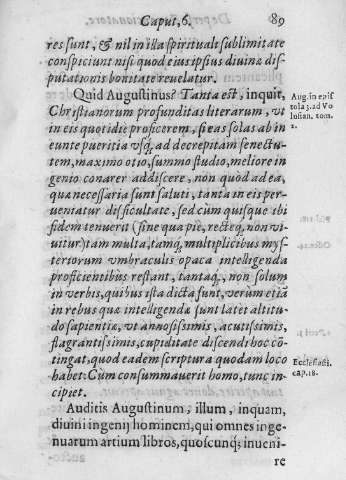 Caput, 6. 89
res sunt, & nil in illa spirituali sublimitate
conspiciunt nisi quod eius ipsius diuinæ dis-
putationis bonitate reuelatur.
Quid Augustinus? Tanta est, inquit,
Christianorum profunditas literarum, vt
in eis quotidie proficerem, si eas solas ab in
eunte pueritia vsq; ad decrepitam senectu-
tem, maximo otio, summo studio, meliore in
genio conarer addiscere, non quòd ad ea,
quæ necessaria sunt saluti, tanta in eis per-
ueniatur difficultate, sed cùm quisque ibi
fidem tenuerit (sine qua piè, rectéq, non vi-
uitur) tam multa, tamq; multiplicibus mys-
teriorum vmbraculis opaca intelligenda
proficientibus restant, tantaq; non solum
in verbis, quibus ista dicta sunt, verùm etiã
in rebus quæ intelligendæ sunt latet altitu-
do sapientiæ, vt annosissimis, acutissimis,
flagrantissimis, cupiditate discendi hoc cõ-
tingat, quod eadem scriptura quodam loco
habet: Cùm consummauerit homo, tunc in-
cipiet.
Auditis Augustinum, illum, inquam,
diuini ingenij hominem, qui omnes inge-
nuarum artium libros, quoscunq; inueni-
re
Aug. in epis
tola 3. ad Vo
lusian. tom.
2.
Ecclesiasti.
cap. 18.